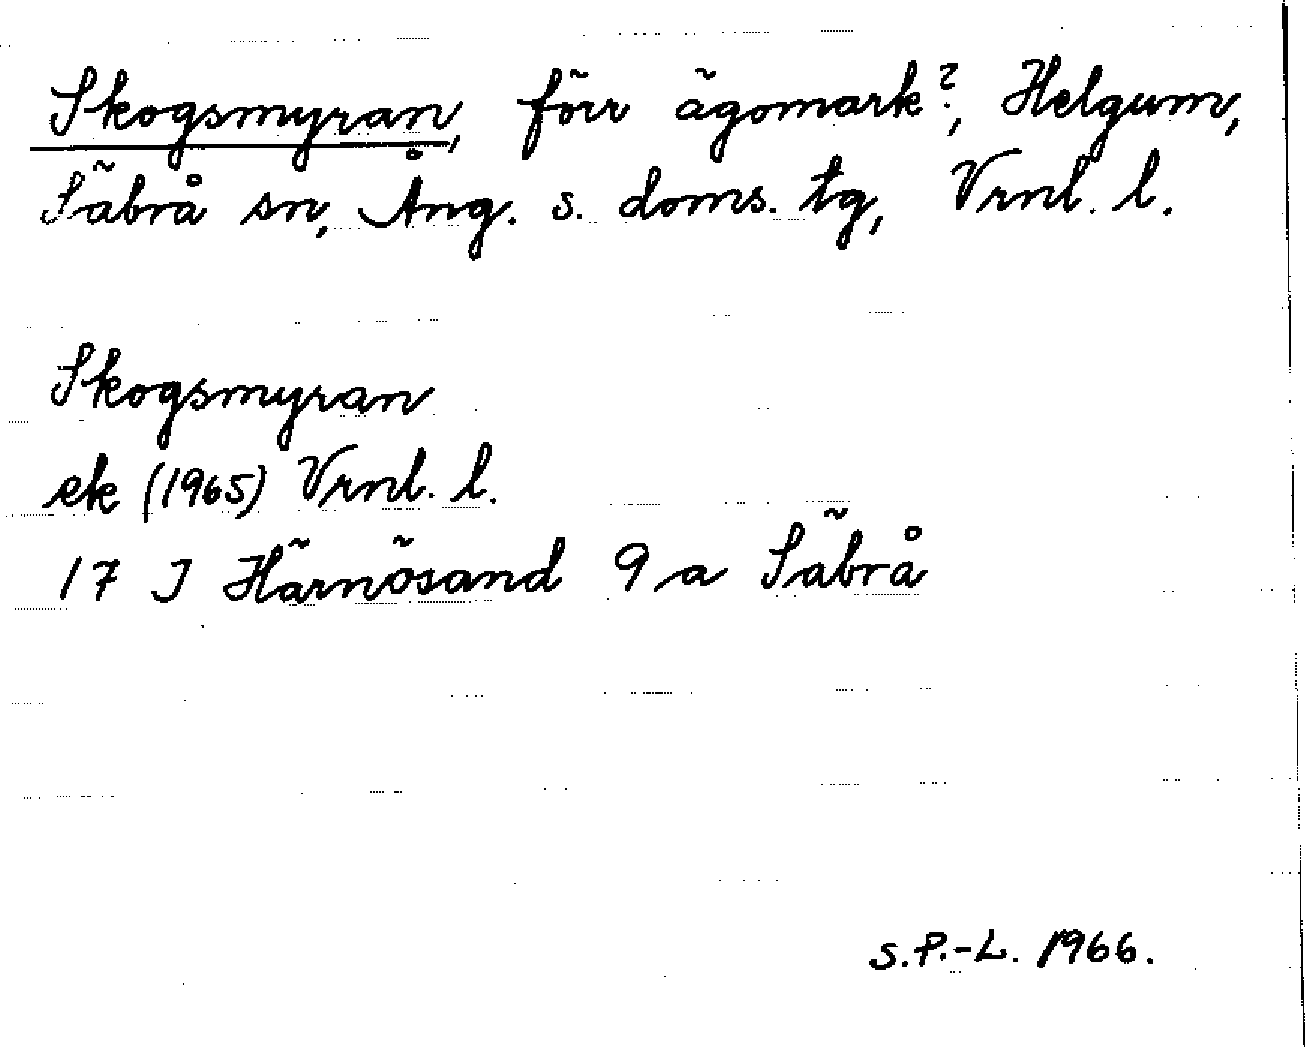 Skogsmyran, förr ägomark?, Helgum,
Säbrå sn, Ång. s. doms. tg, Vrnl. l.
Skogsmyran
ek (1965) Vrnl. l.
17 J Härnösand 9 a Säbrå
S.P.-L. 1966.